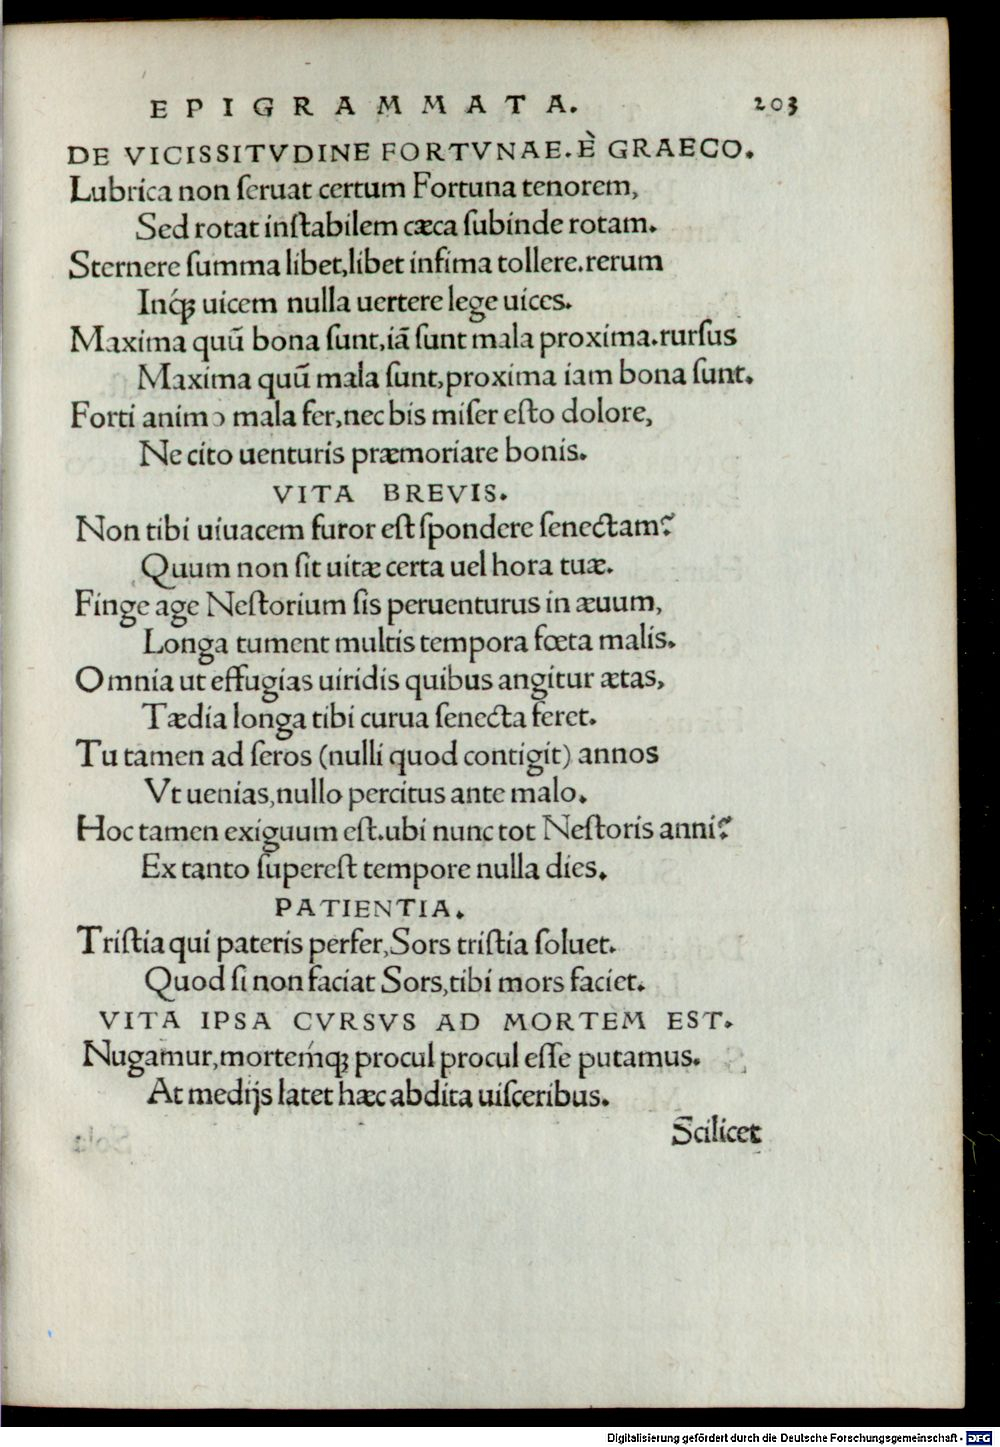 EPIGRAMMATA. 203
DE VICISSITVDINE FORTVNAE. È GRAECO.
Lubrica non ſeruat certum Fortuna tenorem,
Sed rotat inſtabilem cæca ſubinde rotam.
Sternere ſumma libet, libet infima tollere. rerum
Inq́ꝫ uicem nulla uertere lege uices.
Maxima quũ bona ſunt, iã ſunt mala proxima. rurſus
Maxima quũ mala ſunt, proxima iam bona ſunt.
Forti animo mala fer, nec bis miſer eſto dolore,
Ne cito uenturis præmoriare bonis.
VITA BREVIS.
Non tibi uiuacem furor eſt ſpondere ſenectam?
Quum non ſit uitæ certa uel hora tuæ.
Finge age Neſtorium ſis peruenturus in æuum,
Longa tument multis tempora fœta malis.
Omnia ut effugias uiridis quibus angitur ætas,
Tædia longa tibi curua ſenecta feret.
Tu tamen ad ſeros (nulli quod contigit) annos
Vt uenias, nullo percitus ante malo.
Hoc tamen exiguum eſt. ubi nunc tot Neſtoris anni?
Ex tanto ſupereſt tempore nulla dies.
PATIENTIA.
Triſtia qui pateris perfer, Sors triſtia ſoluet.
Quod ſi non faciat Sors, tibi mors faciet.
VITA IPSA CVRSVS AD MORTEM EST.
Nugamur, morteḿqꝫ procul procul eſſe putamus.
At medijs latet hæc abdita uiſceribus.
Scilicet
Digitalisierung gefördert durch die Deutsche Forschungsgemeinschaft - DFG